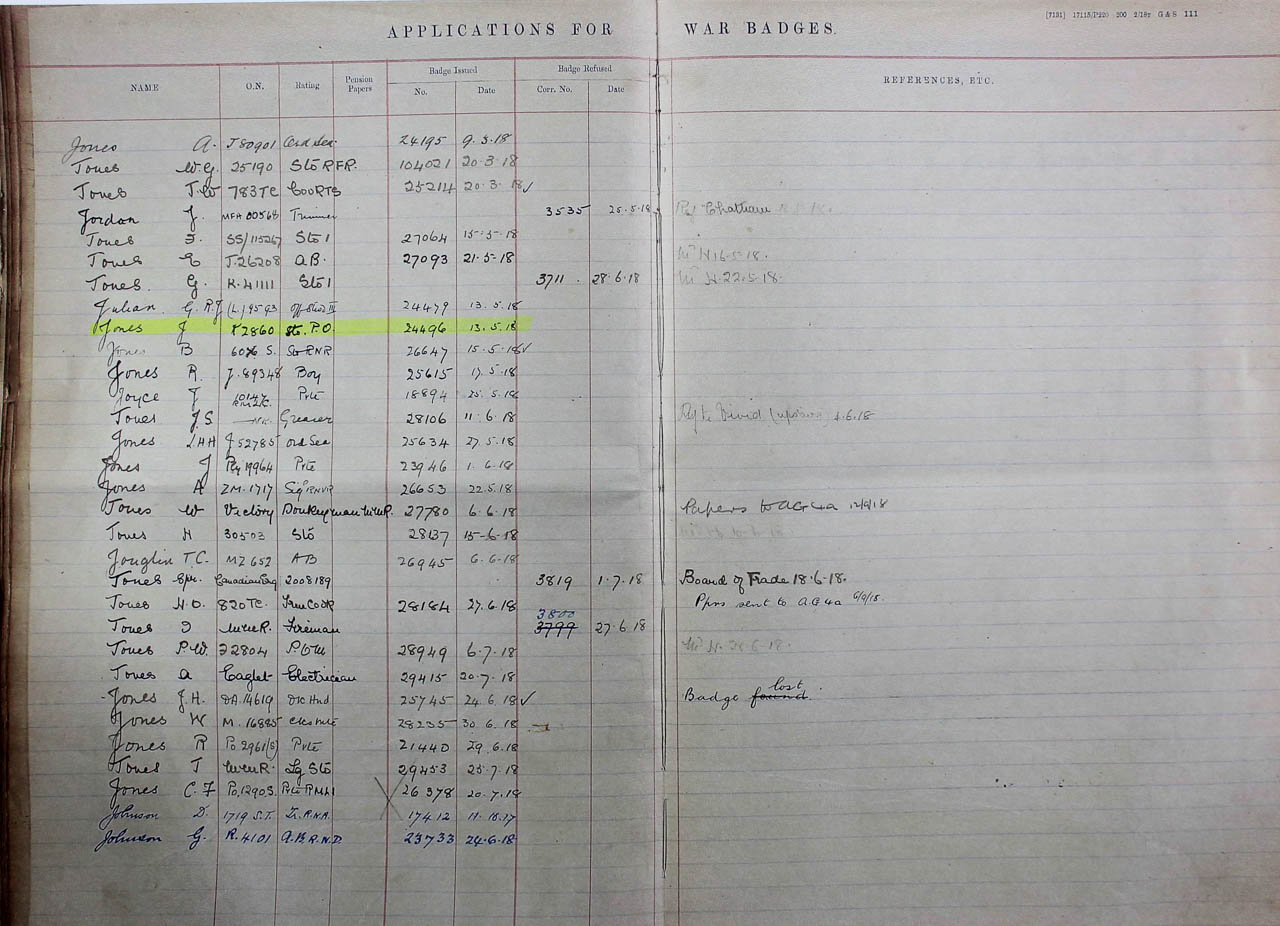 [7131] 17115/P220 200 2/18T G & S 111
APPLICATIONS FOR WAR BADGES.
NAME O.N. Rating Pension Papers Badge Issued Badge Refused REFERENCES, ETC.
No. Date Corr. No. Date
Jones A. J80901 Ord Sea. 24195 9.3.18
Jones W.G. 25190 Sto RFR. 104021 20.3.18
Jones T.W 783TC CookTS 25214 20.3.18 ✓
Jordan J. MFA 00568 Trimmer 3535 25.5.18 Chatham
Jones SS/115267 Sto 1 27064 15-5-18
Jones E J.26208 A.B. 27093 21-5-18 16-5-18.
Jones G. K.41111 Sto 1 3711. 28.6.18 22.5.18.
Julian G.R.J (L.)9593 Off Stwd III 24479 13.5.18
Jones J K2860 Sto. P.O. 24496 13.5.18
Jones B S. Sto RNR 26647 15.5.18 ✓
Jones R. J.89348 Boy 25615 17.5.18
Joyce J Pte 18894 25.5.18
Jones J.S. Greaser 28106 11.6.18 Vivid 6.18
Jones J52785 Ord Sea 25634 27.5.18
Jones J Ply 19964 Pte 23946 1.6.18
Jones A ZM.1717 Sig RNVR 26653 22.5.18
Jones W Victory Donkeyman M.M.R. 27780 6.6.18 Papers to AG4a 12/9/18
Jones H 30503 Sto 28137 15-6-18
Jouglin T.C. MZ652 AB 26945 6.6.18
Jones Spr. Canadian Eng 2008189 3819 1.7.18 Board of Trade 18.6.18.
Jones H.O. 820TC. Cook 28184 27.6.18 Pprs sent to AG4a 6/9/18.
3800
Jones M.M.R. Fireman 3799 27.6.18
Jones P.W. 22804 28949 6.7.18
Jones A Eaglet Electrician 29415 20.7.18
Jones J.H. DA.14619 Dk Hnd 25745 24.6.18 ✓ Badge found lost.
Jones W M.16885 28235 30.6.18
Jones R Po 2961(S) Pte 21440 29.6.18
Jones T M.M.R. Lg Sto 29453 25.7.18
Jones C.F Po,1290S. Pte RMLI 26378 20.7.18
Johnson D. 1719 S.T. 17412
Johnson G. R.4101 A.B. R.N.D. 23733 24.6.18